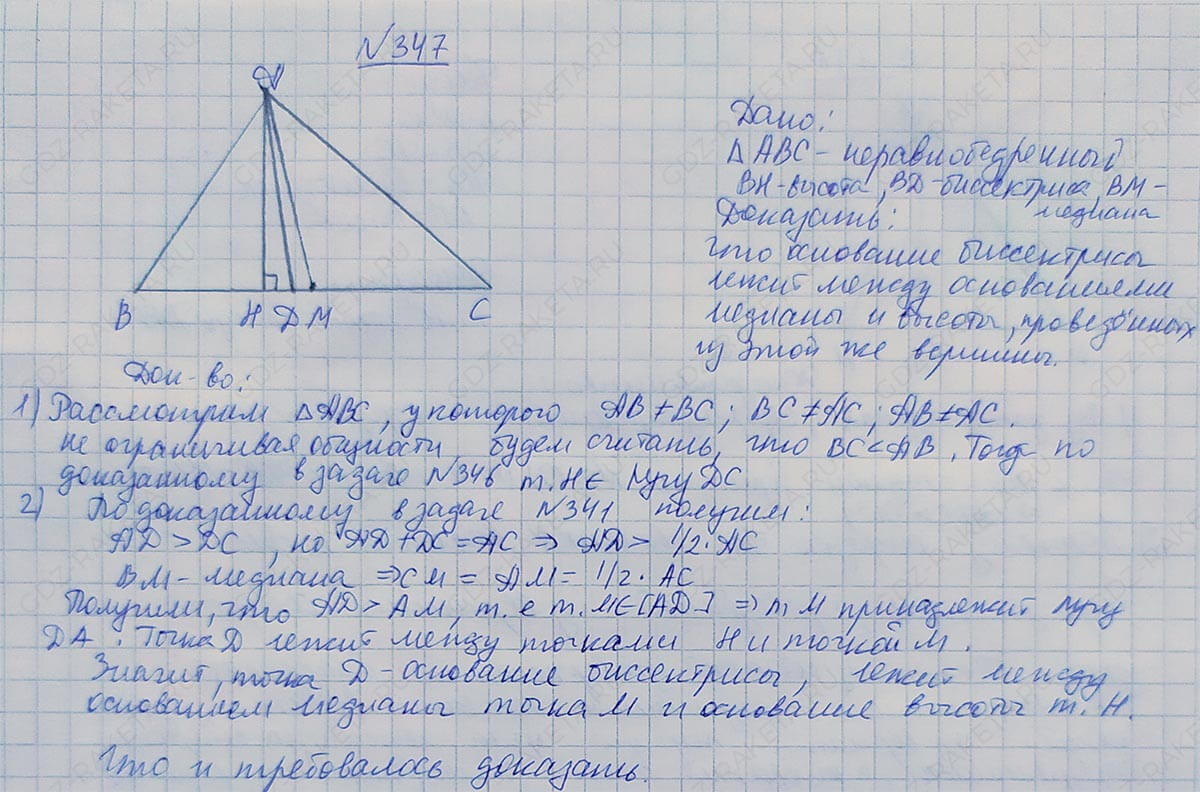 N347
A
B H D M C
Дано:
△ABC - неравнобедренный
BH-высота, BD-биссектриса, BM-
медиана
Доказать:
что основание биссектрисы
лежит между основаниями
медианы и высоты, проведённых
из этой же вершины.
Док-во:
1) Рассмотрим △ABC, у которого AB≠BC; BC≠AC; AB≠AC.
не ограничивая общности, будем считать, что BC<AB. Тогда по
доказанному в задаче N346 т. H∈ лучу DC.
2) По доказанному в задаче N341 получим:
AD>DC, но AD+DC=AC ⇒ AD> 1/2·AC
BM-медиана ⇒ CM = AM = 1/2·AC
Получили, что AD>AM, т.е т.M∈[AD] ⇒ т M принадлежит лучу
DA. Точка D лежит между точками H и точкой M.
Значит, точка D-основание биссектрисы, лежит между
основанием медианы точка M и основание высоты т. H.
Что и требовалось доказать.
GDZ-RAKETA.RU